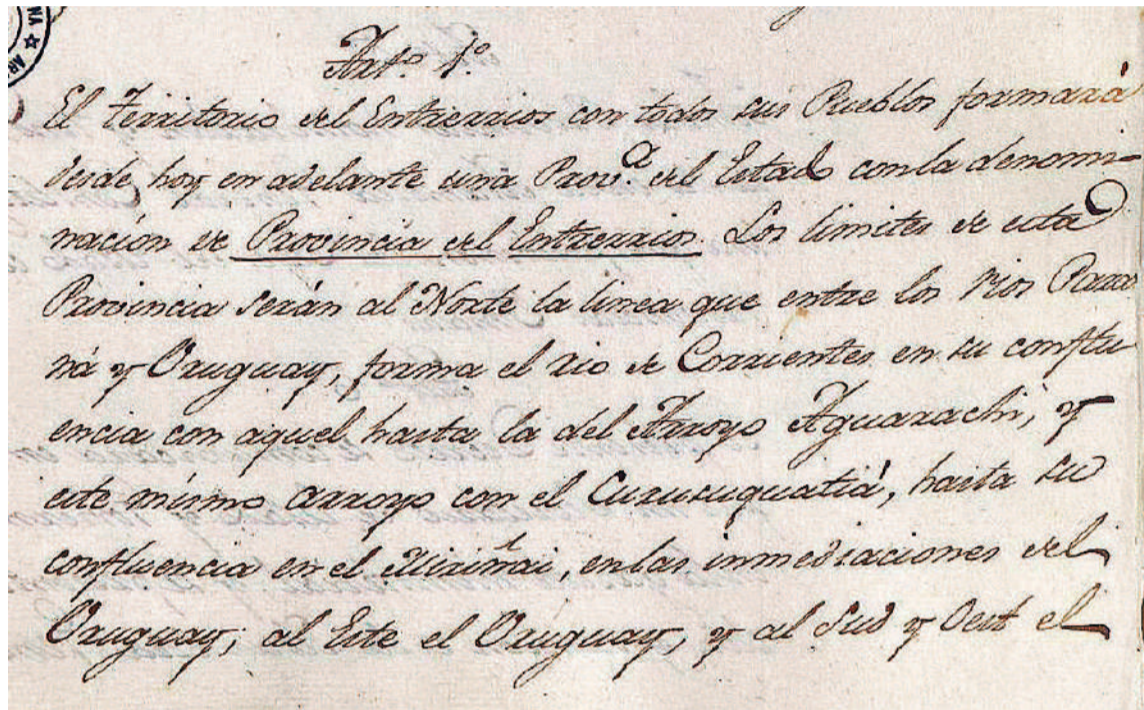 Art.º 1.º
El Territorio del Entrerrios con todos sus Pueblos formará
desde hoy en adelante una Prov.ª del Estad con la denomi-
nación de Provincia del Entrerrios. Los limites de esta
Provincia serán al Norte la linea que entre los rios Para
ná y Uruguay, forma el rio de Corrientes en su conflu
encia con aquel hasta la del Arroyo Aguarachi, y
este mismo arroyo con el Curusuquatiá, hasta su
confluencia en el Miriñai, en las inmediaciones del
Uruguay; al Este el Uruguay, y al Sud y Oest el